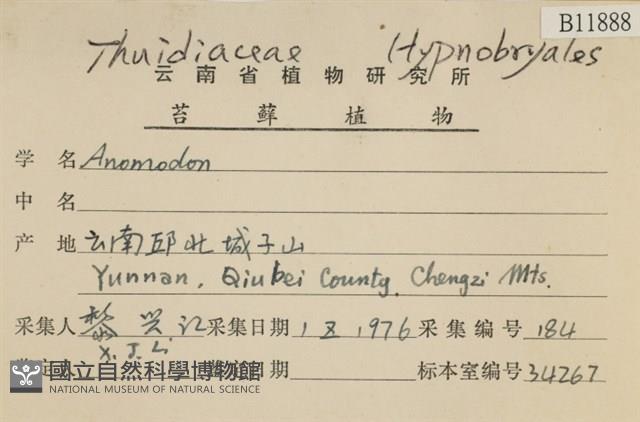 B11888
Thuidiaceae Hypnobryales
云南省植物研究所
苔藓植物
学名 Anomodon
中名
产地 云南邱北城子山
Yunnan, Qiubei County, Chengzi Mts.
采集人 黎兴江 采集日期 1 X 1976 采集编号 184
X. J. Li
日期 标本室编号 34267
國立自然科學博物館
NATIONAL MUSEUM OF NATURAL SCIENCE